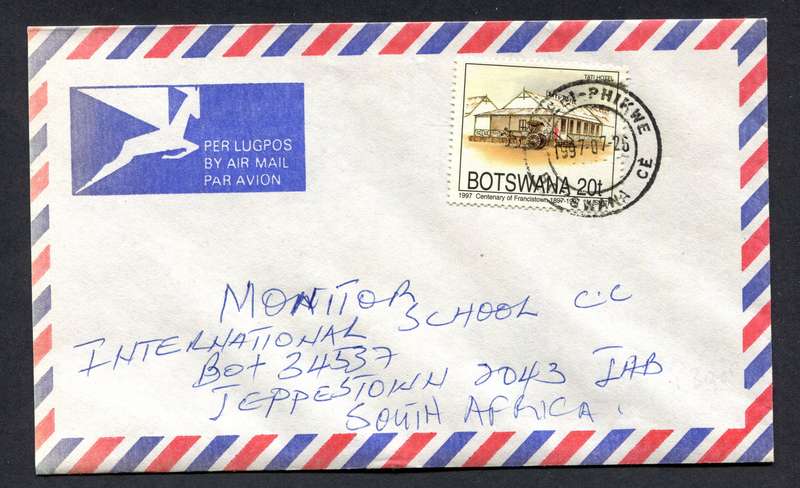 PER LUGPOS
BY AIR MAIL
PAR AVION
TATI HOTEL
BOTSWANA 20t
1997 Centenary of Francistown 1897-1997
-PHIKWE
1997-07-26
SWANA CE
MONITOR
INTERNATIONAL SCHOOL C.C
Box 34537
JEPPESTOWN 2043 JAB
SOUTH AFRICA.